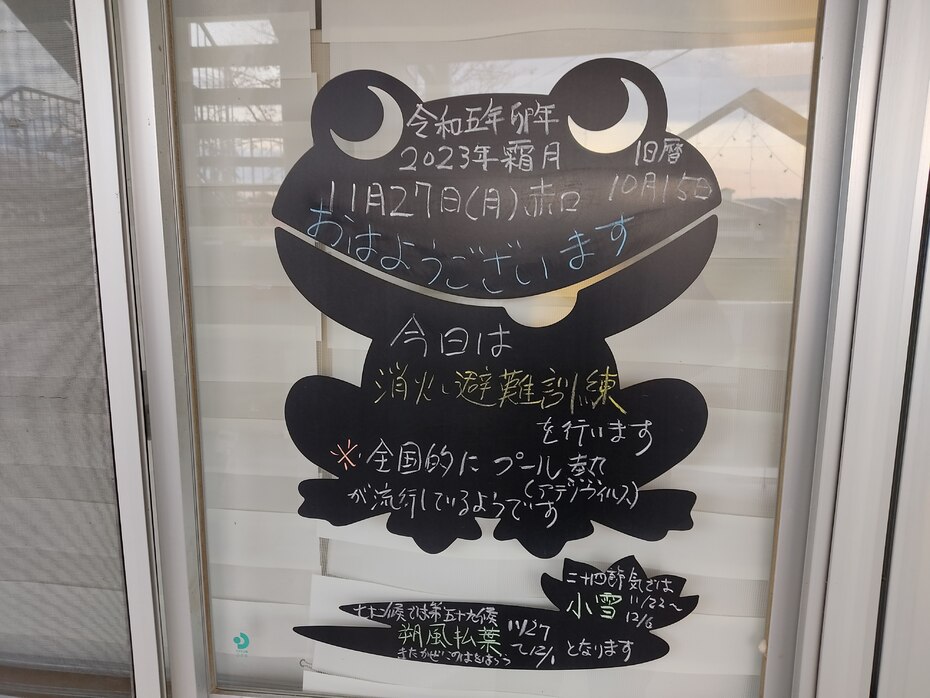 令和五年卯年
2023年霜月
旧暦
11月27日(月)赤口
10月15日
おはようございます
今日は
消火、避難訓練
を行います
※全国的にプール熱
(アデノヴィルス)
が流行しているようです
二十四節気では
小雪 11/22〜
12/6
七十二候では第五十九候
朔風払葉 11/27
きたかぜこのはをはらう
〜12/1 となります